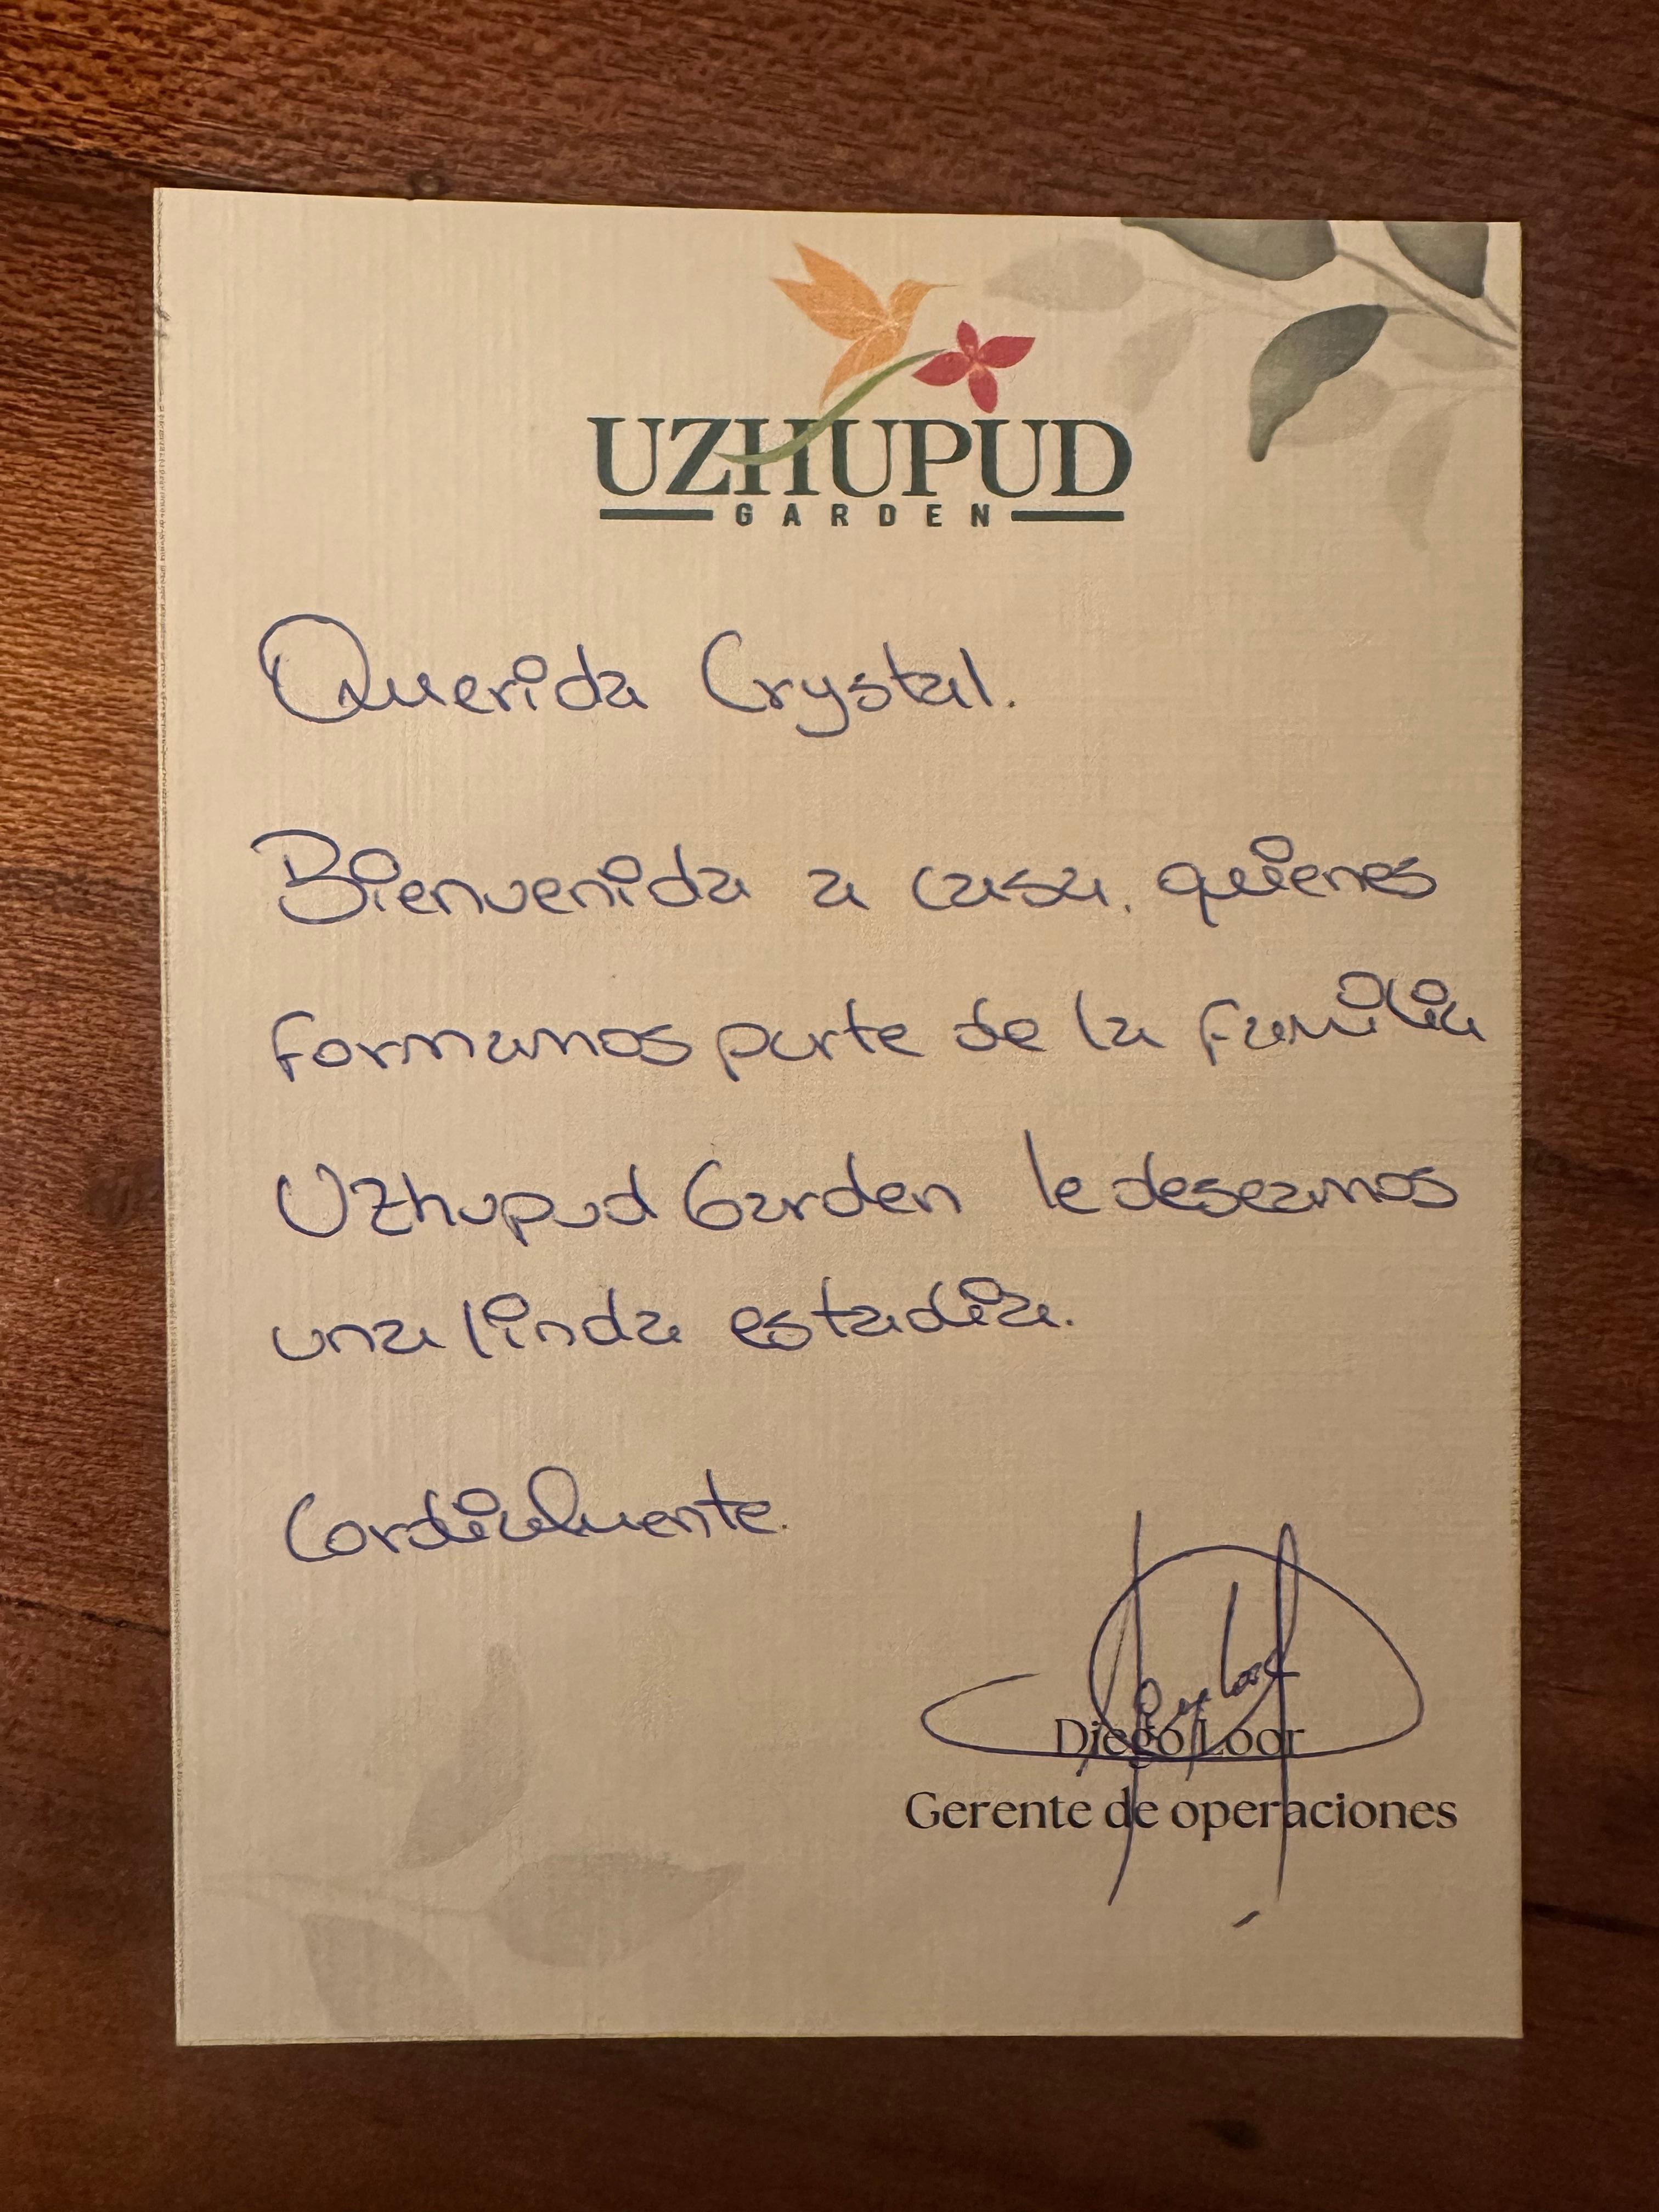 UZHUPUD
GARDEN
Querida Crystal.
Bienvenida a casa, quienes
formamos parte de la familia
Uzhupud Garden le deseamos
una linda estadia.
Cordialmente.
Diego Loor
Gerente de operaciones